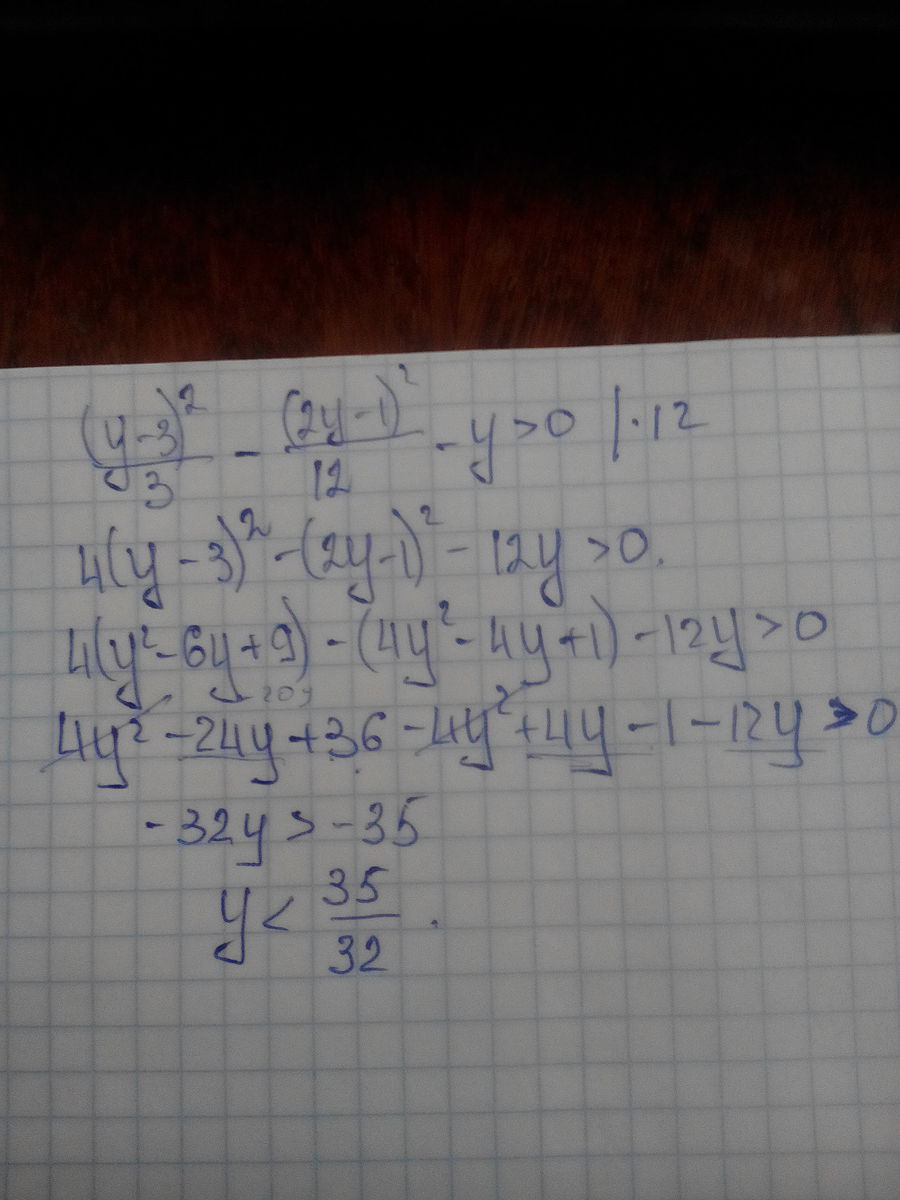 (y-3)²/3 - (2y-1)²/12 - y > 0 |·12
4(y-3)² - (2y-1)² - 12y > 0.
4(y²-6y+9) - (4y²-4y+1) - 12y > 0
4y² - 24y + 36 - 4y² + 4y - 1 - 12y > 0
-32y > -35
y < 35/32.